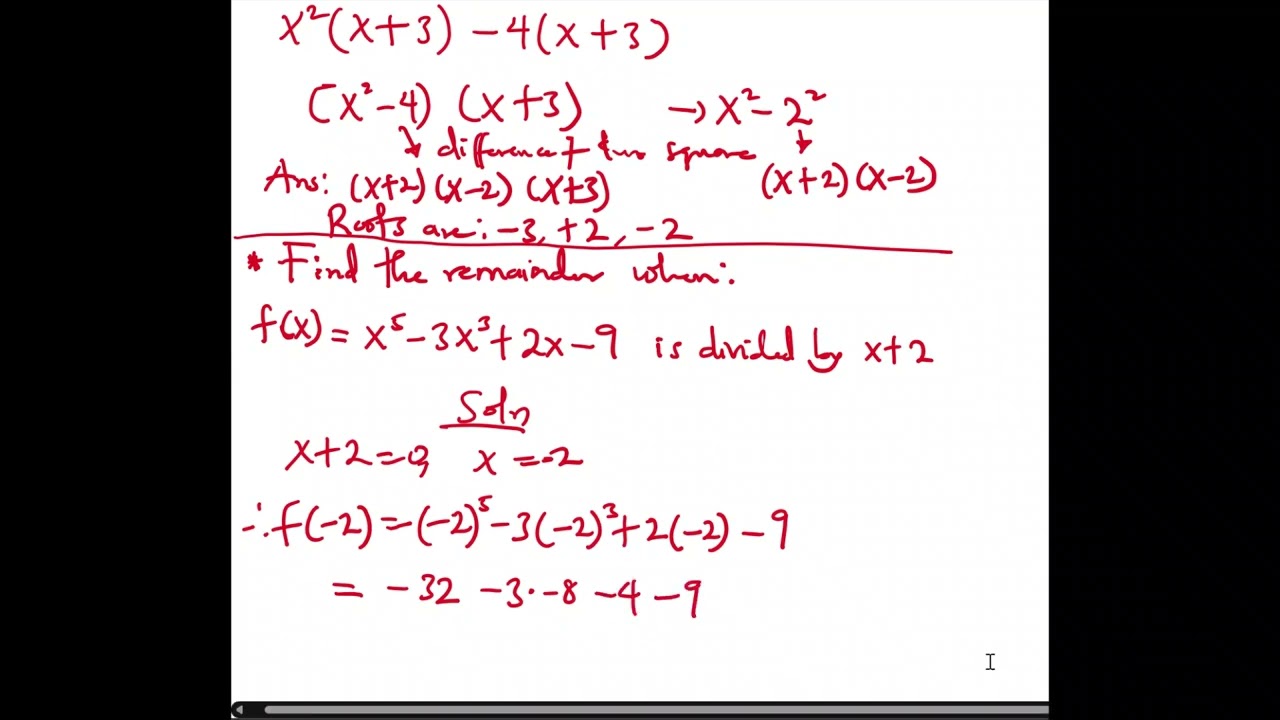 x²(x+3) -4(x+3)
(x²-4) (x+3) → x²-2²
↓ difference of two square ↓
Ans: (x+2)(x-2)(x+3) (x+2)(x-2)
Roots are: -3, +2, -2
* Find the remainder when:
f(x) = x⁵-3x³+2x-9 is divided by x+2
Soln
x+2=0, x=-2
∴ f(-2) = (-2)⁵-3(-2)³+2(-2)-9
= -32 -3·-8 -4 -9